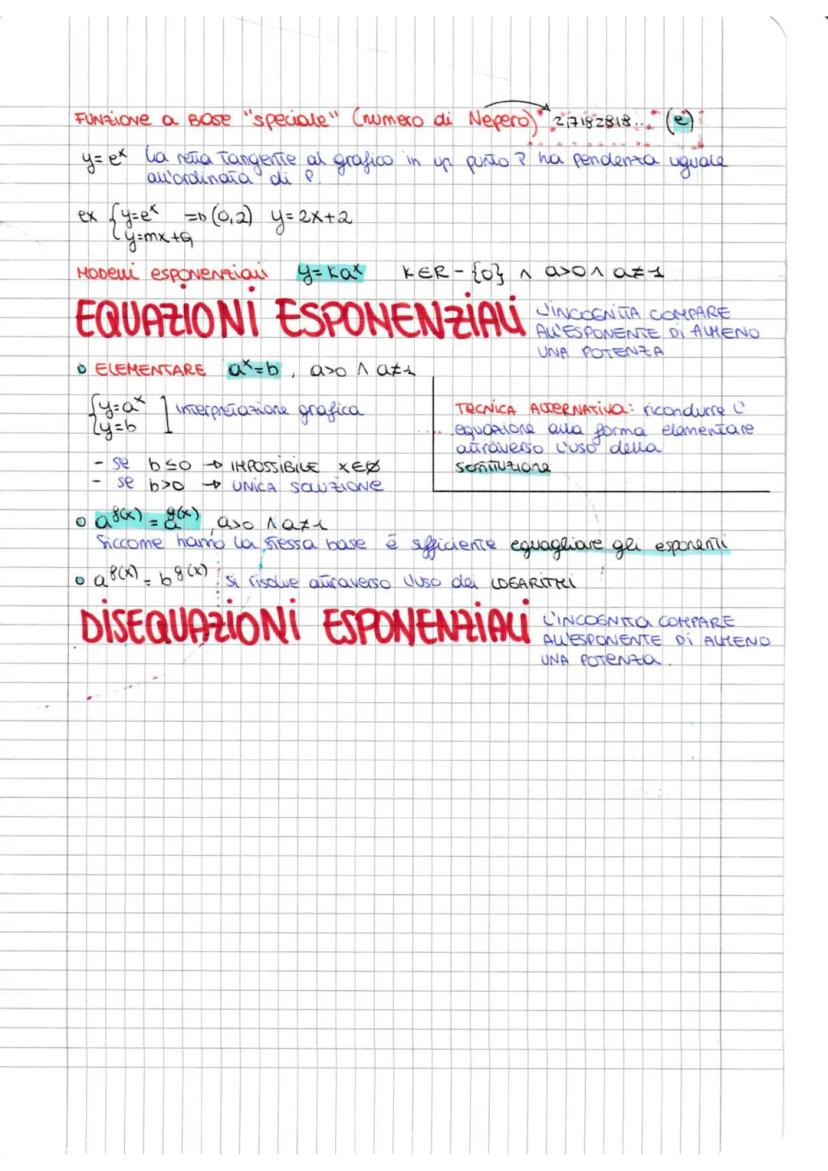 FUNZIONE a BASE "speciale" (numero di Nepero) 2,7182818... (e)
y=e^x La retta tangente al grafico in un punto P ha pendenza uguale
all'ordinata di P.
ex {y=e^x => (0,2) y=2x+2
{y=mx+q
MODELLI esponenziali y=ka^x K∈R-{0} ∧ a>0 ∧ a≠1
EQUAZIONI ESPONENZIALI L'INCOGNITA COMPARE
ALL'ESPONENTE DI ALMENO
UNA POTENZA
ELEMENTARE a^x=b, a>0 ∧ a≠1
{y=a^x ] interpretazione grafica
{y=b
- se b≤0 → IMPOSSIBILE x∈∅
- se b>0 → UNICA SOLUZIONE
TECNICA ALTERNATIVA: ricondurre l'
equazione alla forma elementare
attraverso l'uso della
sostituzione
a^f(x) = a^g(x), a>0 ∧ a≠1
Siccome hanno la stessa base è sufficiente eguagliare gli esponenti
a^f(x) = b^g(x) si risolve attraverso l'uso dei LOGARITMI
DISEQUAZIONI ESPONENZIALI L'INCOGNITA COMPARE
ALL'ESPONENTE DI ALMENO
UNA POTENZA.